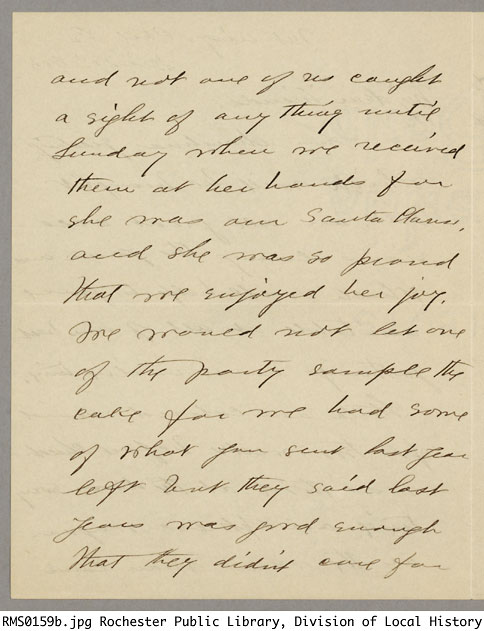 and not one of us caught
a sight of any thing until
Sunday when we received
them at her hands for
she was our Santa Claus,
and she was so proud
that we enjoyed her joy.
We would not let one
of the party sample the
cake for we had some
of what you sent last year
left but they said last
years was good enough
that they didn't care for
RMS0159b.jpg Rochester Public Library, Division of Local History